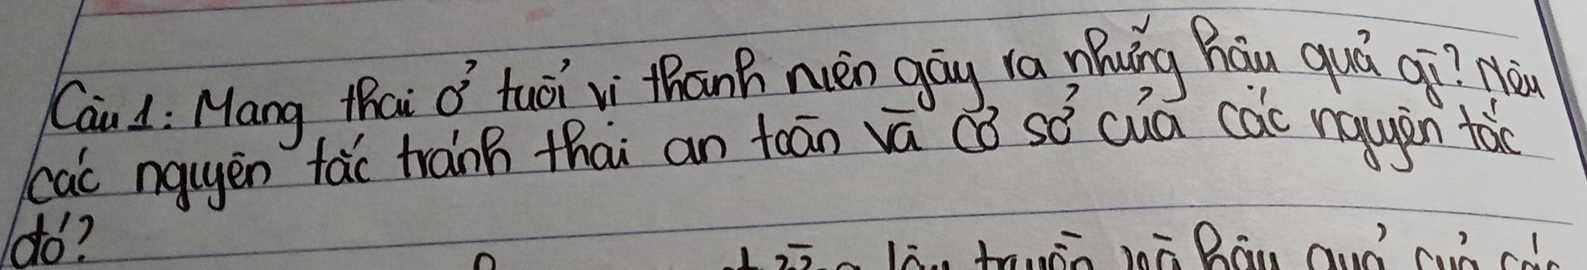 Câu 1: Mang thai ở tuổi vị thành niên gây ra những hậu quả gì? Nêu
các nguyên tắc tránh thai an toàn và cơ sở của các nguyên tắc
đó?
lây truyền và hậu quả của các